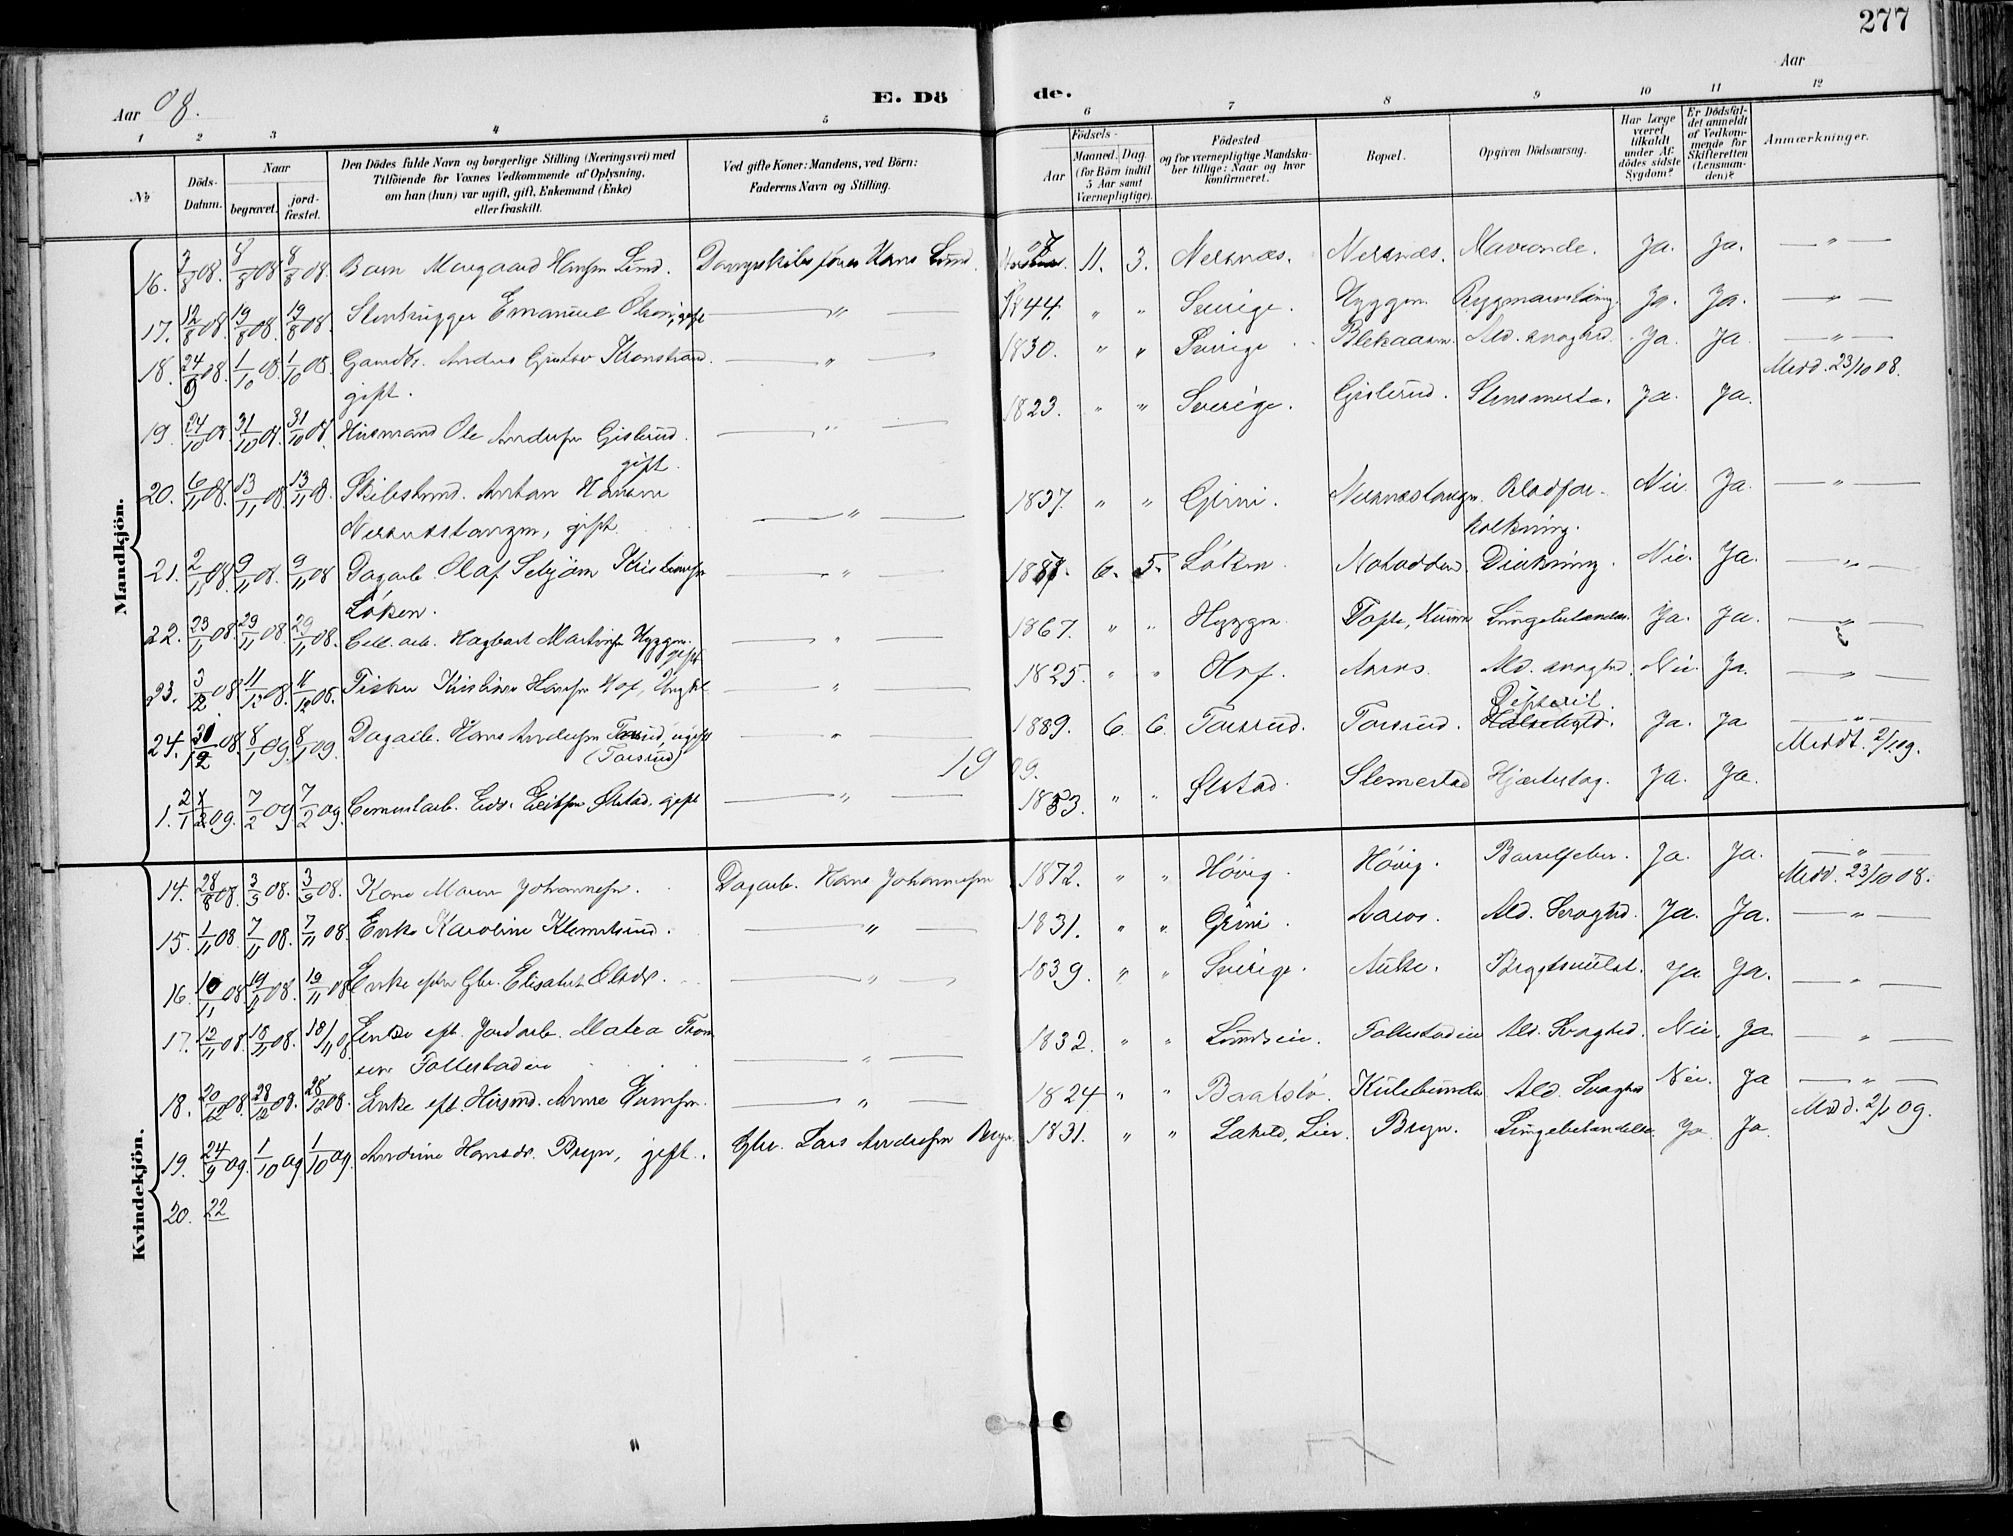 277
Aar 08.
E. Dö de.
Aar
1 2 3 4 5 6 7 8 9 10 11 12
No
Döds-Datum.
Naar
begravet.
jord-fæstet.
Den Dödes fulde Navn og borgerlige Stilling (Næringsvei) med
Tilföiende for Voxnes Vedkommende af Oplysning,
om han (hun) var ugift, gift, Enkemand (Enke)
eller fraskilt.
Ved gifte Koner: Mandens, ved Börn:
Faderens Navn og Stilling.
Födsels-
Aar
Maaned. Dag.
(for Börn indtil
5 Aar samt
Værnepligtige).
Födested
og for værnepligtige Mandska-
ber tillige: Naar og hvor
konfirmeret.
Bopæl.
Opgiven Dödsaarsag.
Har Læge
været
tilkaldt
under Af-
dödes sidste
Sygdom?
Er Dödsfal-
det anmeldt
af Vedkom-
mende for
Skifteretten
(Lensman-
den)?
Anmærkninger.
Mandkjön.
16. 8/8 08. 8/8 08. Barn Hansen Lund. Dampskibsfører Hans Lund. 11. 3. Nersnæs. Nersnæs. Ja. Ja. — " —
17. 12/8 08 19/8 08. 19/8 08. Emanuel Olsen, gift — " — 1844. " " Sverige. Hyggen. Ja. Ja. — " —
18. 24/9 08. 1/10 08. 1/10 08. Gaardbr. Anders Gustav — " — 1830. " " Sverige. Ald. svaghed. Ja. Ja. — " —
gift. Medd. 23/10 08.
19. 24/10 08. 31/10 08. 31/10 08. Husmand Ole Andersen Gislerud. — " — 1823. " " Sverige. Gislerud. Ja. Ja.
gift.
20. 6/11 08. 13/11 08. 13/11 08. Anton Hansen 1837. " " Grini. Nersnestangen. Nei. Ja. — " —
Nersnestangen, gift. — " — kalkning.
21. 2/11 08 9/11 08. 9/11 08 Dagarb. Olaf — " — 6. 5. Løken. Notodden. Drukning. Nei. Ja. — " —
Løken.
22. 23/11 08. 29/11 08 29/11 08. Cell. arb. Hagbart Martinsen Hyggen. — " — 1867. " " Hyggen. Tofte, Hurum Lungebetændelse. Ja. Ja. — " —
gift
23. 3/12 08 11/12 08. 11/12 08. Fisker Kristian Hansen Hof, — " — 1825. " " Hof. Aaros. Ald. svaghed. Nei. Ja. — " —
Difterit.
24. 31/12 08. 8/1 09. 8/1 09. Dagarb. Hans Andersen ugift — " — 1889. 6. 6. Torsrud. Torsrud. Ja. Ja — " —
(Torsrud) Meddt. 2/1 09.
19 09.
1. 09. 7/2 09. 7/2 09. Cementarb. Ølstad, gift — " — 18 3. " " Ølstad. Slemestad Hjerteslag. Ja. Ja.
Kvindekjön.
14. 28/8 08. 3/9 08. 3/9 08. Kone Maren Johannesen. Dagarb. Hans Johannesen 1872. " " Høvig. Høvig. Barselfeber. Ja. Ja. — " —
Medd. 23/10 08.
15. 1/11 08. 7/11 08. 7/11 08. Enke Karoline Klemetsrud. — " — 1831. " " Grini. Aaros. Ald. Svaghed. Ja. Ja. — " —
16. 10/11 08 19/11 08. 19/11 08 Enke efter Gbr. Elisabet Olsdr. — " — 1839. " " Sverige. Auke. Ja Ja. — " —
17. 12/11 08. 18/11 08. 18/11 08 Enke eft. Jordarb. Matea — " — 1832. " " Follestadeie Ald. Svaghed. Nei. Ja — " —
18. 20/12 08. 28/12 08. 28/12 08. Enke eft. Husmd. Anne — " — 1824 " " Baatstø. Kulebunden Ald. Svaghed Nei. Ja — " —
Medd. 2/1 09.
19. 24/9 09. 1/10 09 1/10 09. Andrine Hansdr. Bryn, gift. Gbr. Lars Andersen Bryn. 1831. " " Lier. Bryn. Lungebetændelse. Ja. Ja.
20. 22